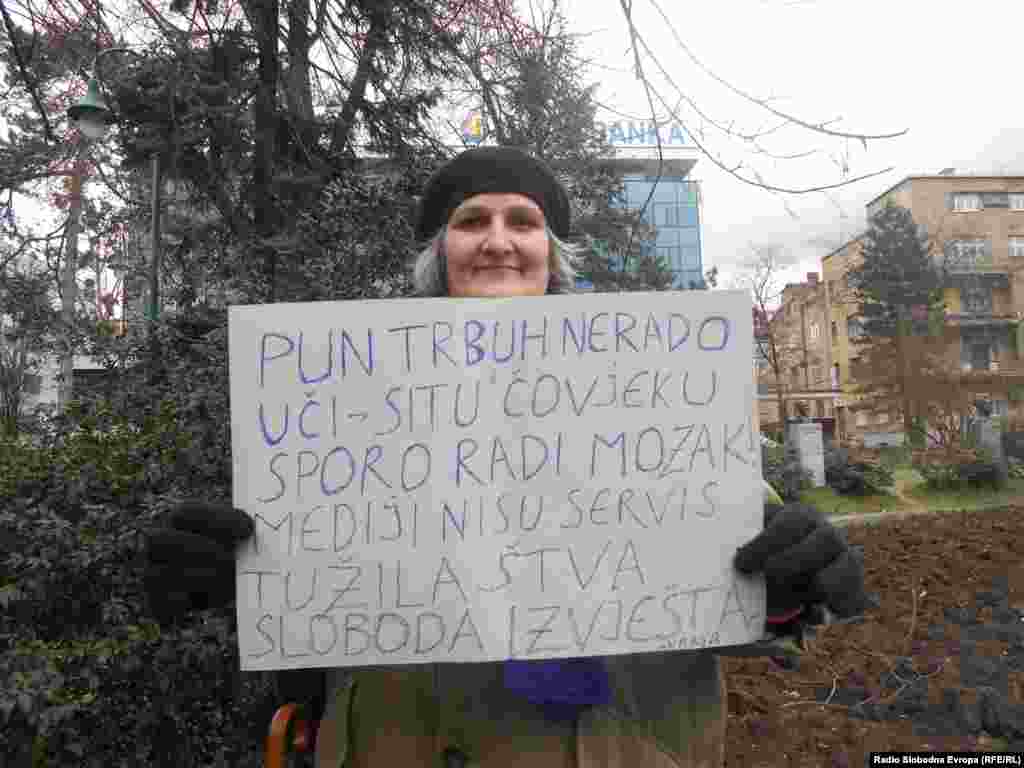 ANKA
PUN TRBUH NERADO
UČI → SITU ČOVJEKU
SPORO RADI MOZAK!
MEDIJI NISU SERVIS
TUŽILAŠTVA
SLOBODA IZVJEŠTA
VANJA
Radio Slobodna Evropa (RFE/RL)